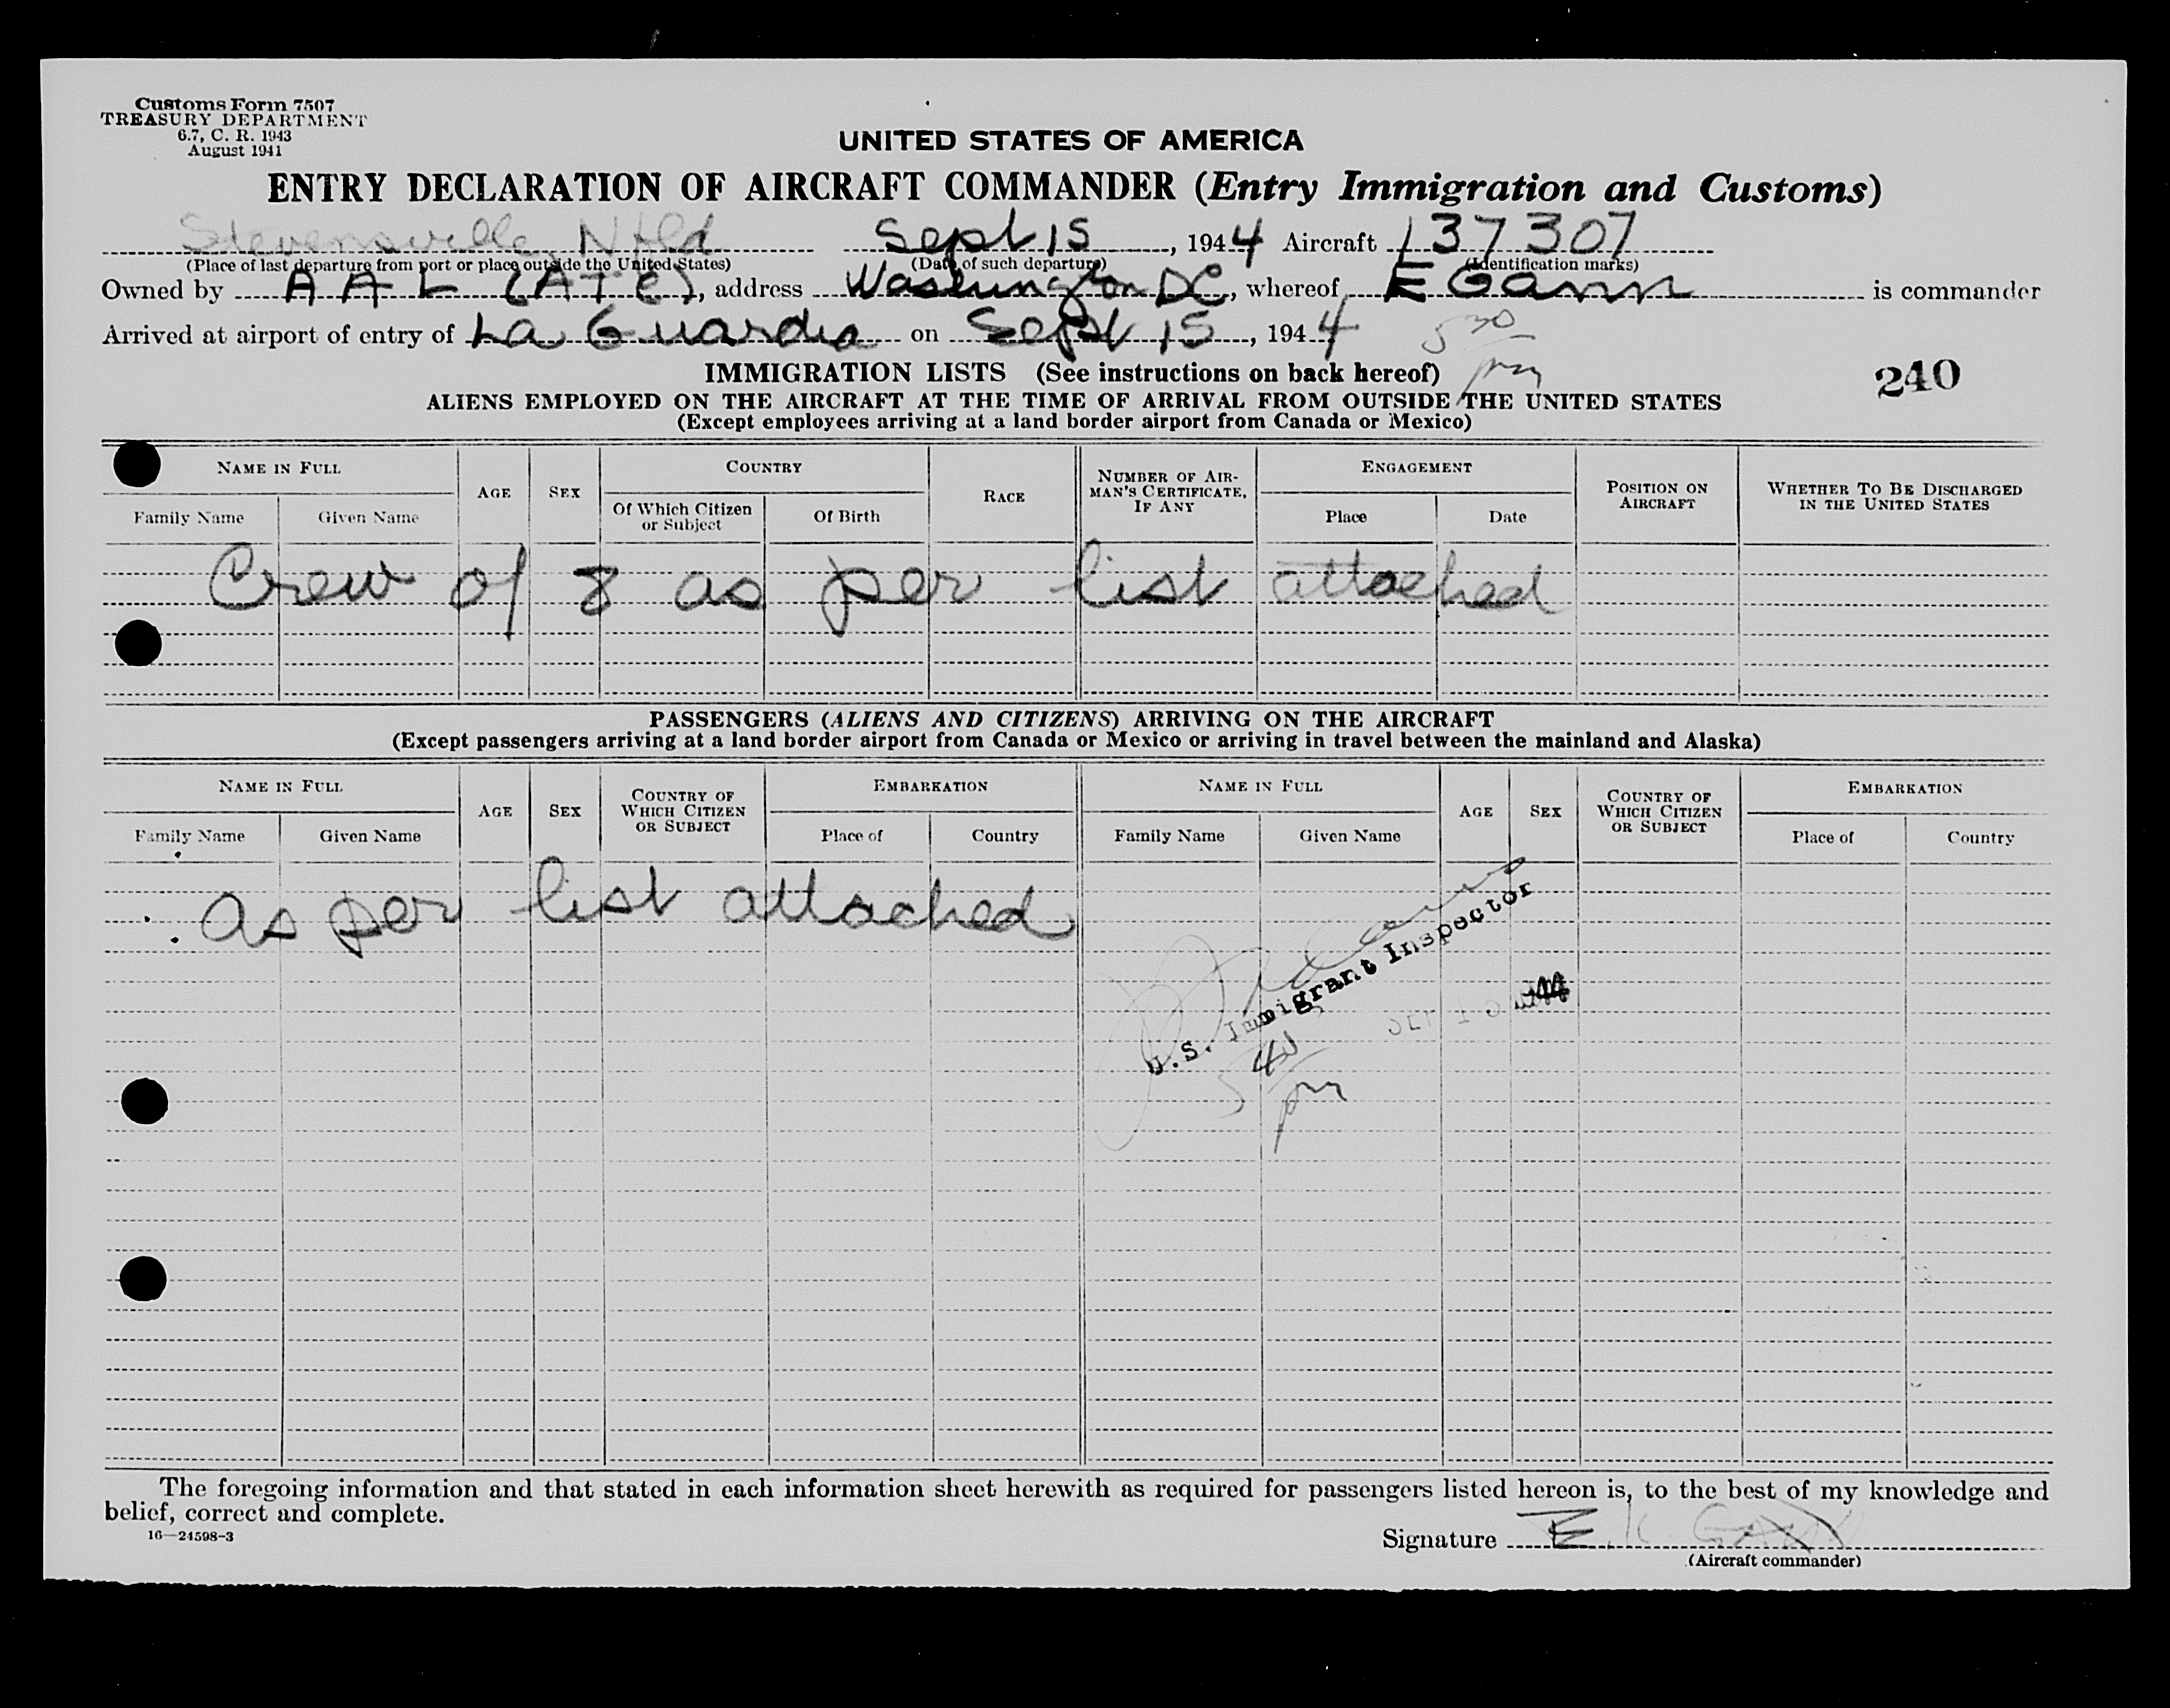 Customs Form 7507
TREASURY DEPARTMENT
6.7, C. R. 1943
August 1941
UNITED STATES OF AMERICA
ENTRY DECLARATION OF AIRCRAFT COMMANDER (Entry Immigration and Customs)
Stevensville Nfld Sept 15, 1944 Aircraft 137307
(Place of last departure from port or place outside the United States) (Date of such departure) (Identification marks)
Owned by AAL (ATC), address Washington DC, whereof E Gann is commander
Arrived at airport of entry of La Guardia on Sept 15, 1944 5 30 pm
IMMIGRATION LISTS (See instructions on back hereof)
240
ALIENS EMPLOYED ON THE AIRCRAFT AT THE TIME OF ARRIVAL FROM OUTSIDE THE UNITED STATES
(Except employees arriving at a land border airport from Canada or Mexico)
NAME IN FULL AGE SEX COUNTRY RACE NUMBER OF AIRMAN'S CERTIFICATE, IF ANY ENGAGEMENT POSITION ON AIRCRAFT WHETHER TO BE DISCHARGED IN THE UNITED STATES
Family Name Given Name Of Which Citizen or Subject Of Birth Place Date
Crew of 8 as per list attached
PASSENGERS (ALIENS AND CITIZENS) ARRIVING ON THE AIRCRAFT
(Except passengers arriving at a land border airport from Canada or Mexico or arriving in travel between the mainland and Alaska)
NAME IN FULL AGE SEX COUNTRY OF WHICH CITIZEN OR SUBJECT EMBARKATION NAME IN FULL AGE SEX COUNTRY OF WHICH CITIZEN OR SUBJECT EMBARKATION
Family Name Given Name Place of Country Family Name Given Name Place of Country
as per list attached
U.S. Immigrant Inspector
5 40 pm
The foregoing information and that stated in each information sheet herewith as required for passengers listed hereon is, to the best of my knowledge and
belief, correct and complete.
16—24598-3
Signature E. K. Gann
(Aircraft commander)